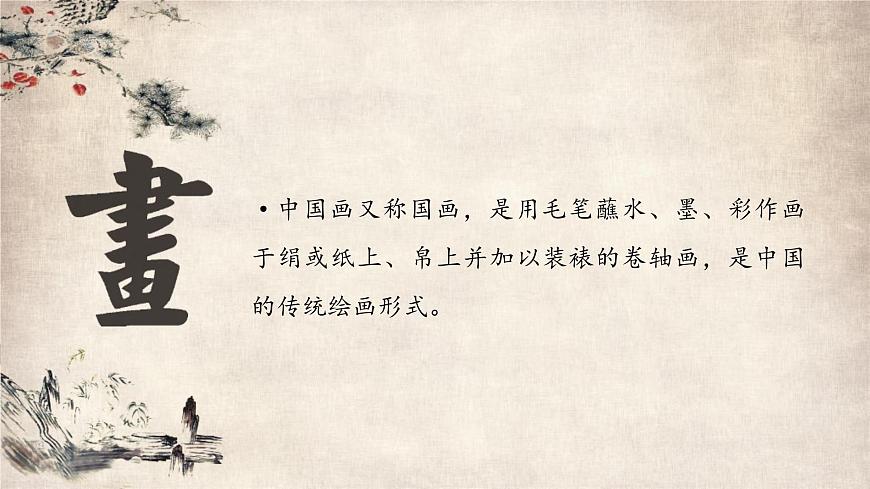 畫
·中国画又称国画，是用毛笔蘸水、墨、彩作画
于绢或纸上、帛上并加以装裱的卷轴画，是中国
的传统绘画形式。